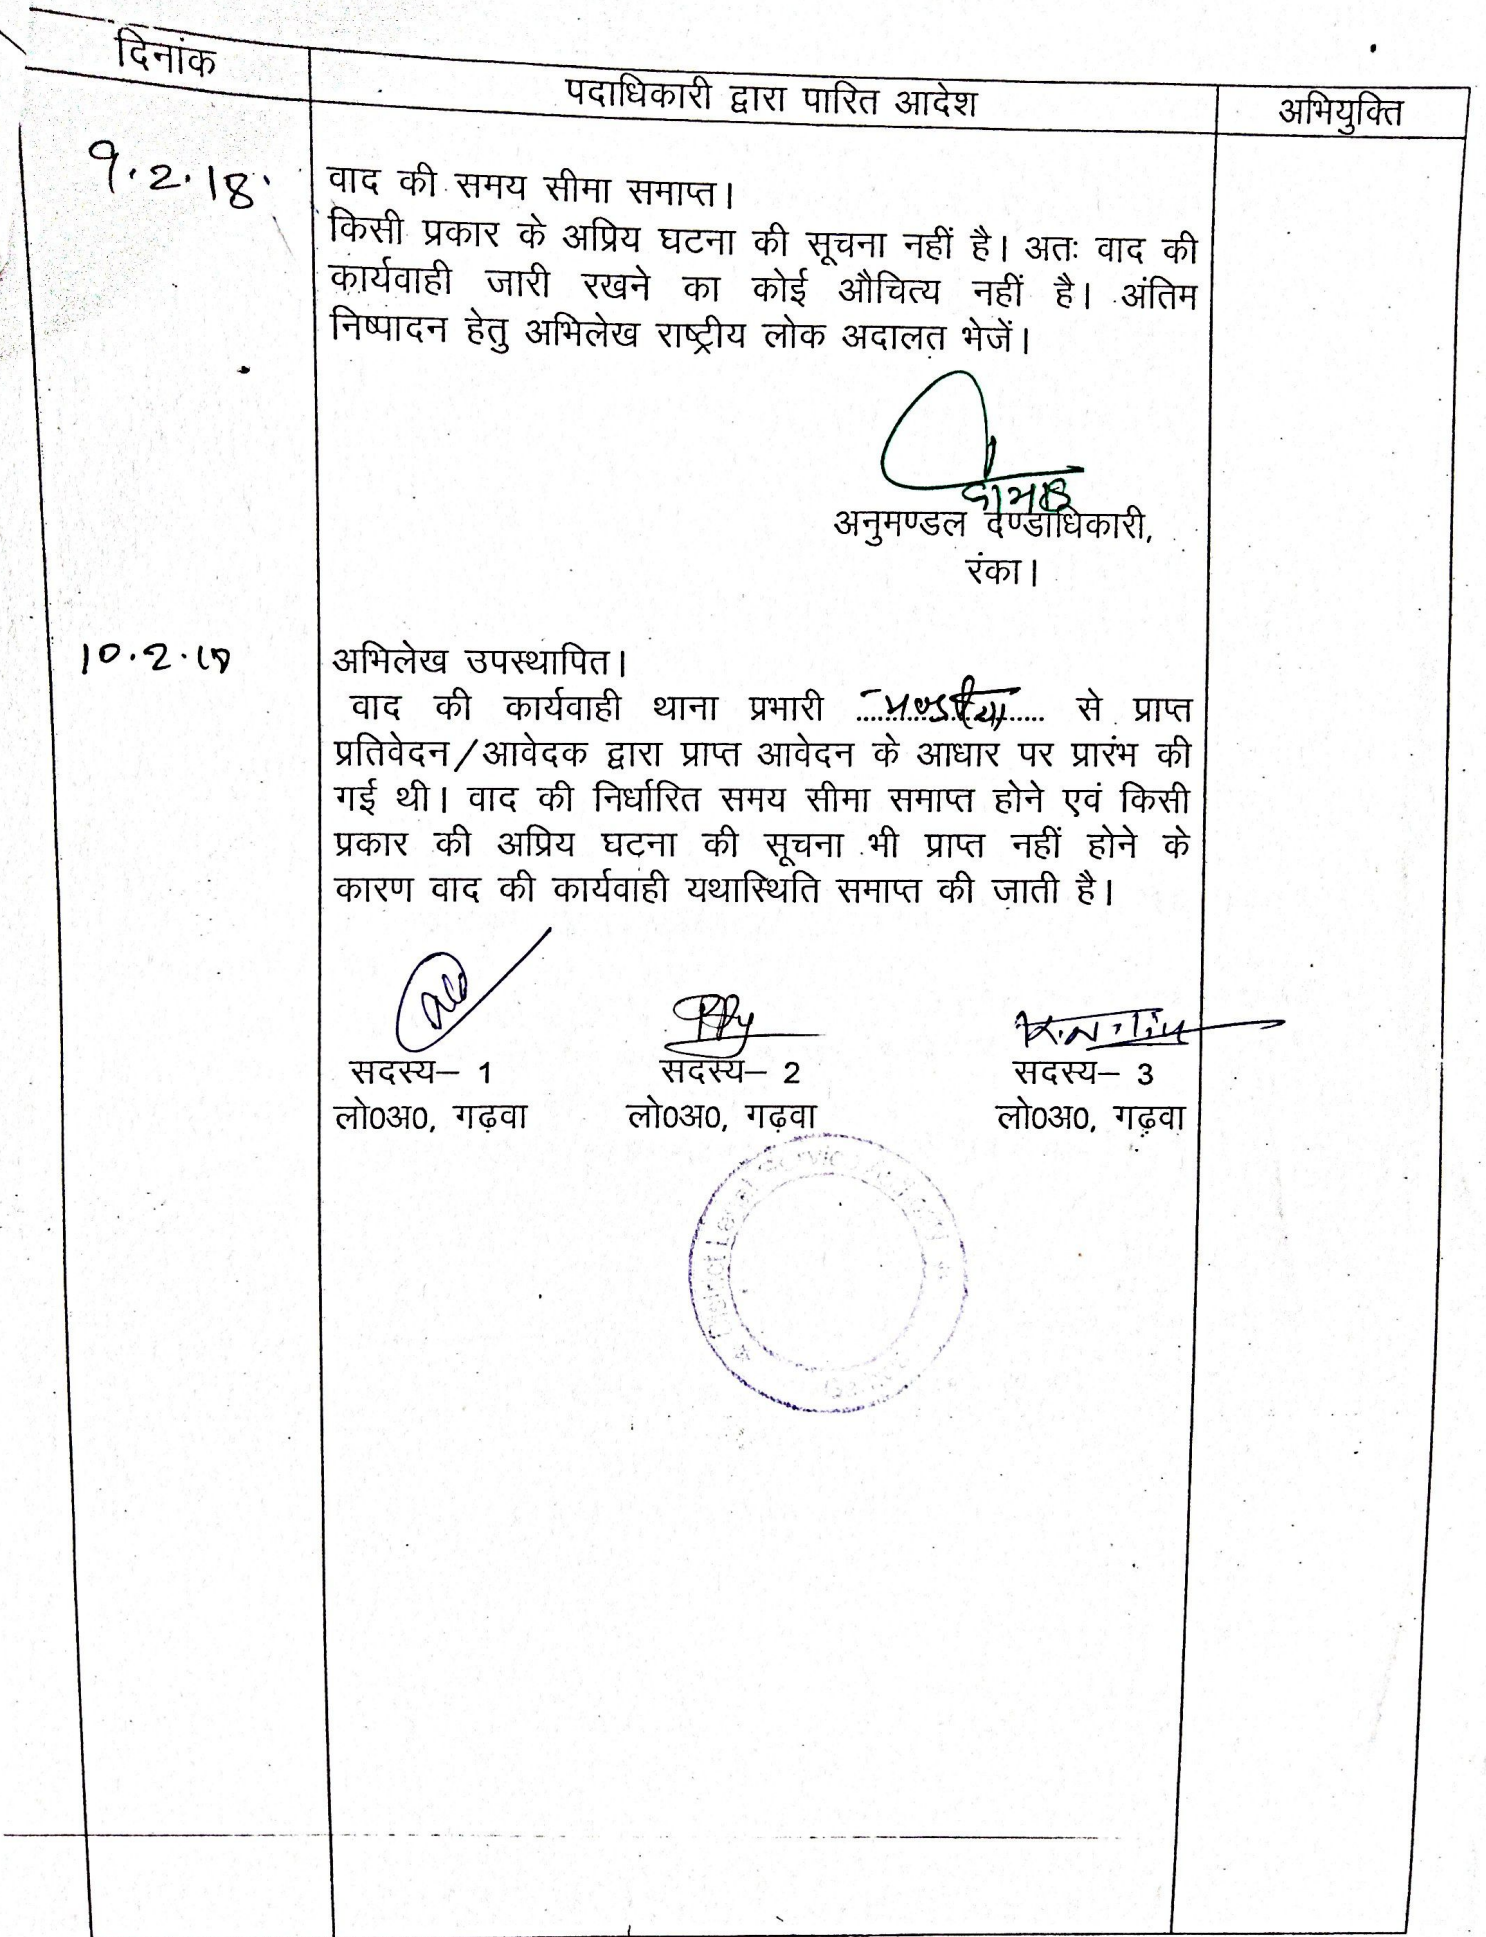 दिनांक
पदाधिकारी द्वारा पारित आदेश
अभियुक्ति
9.2.18
वाद की समय सीमा समाप्त।
किसी प्रकार के अप्रिय घटना की सूचना नहीं है। अतः वाद की
कार्यवाही जारी रखने का कोई औचित्य नहीं है। अंतिम
निष्पादन हेतु अभिलेख राष्ट्रीय लोक अदालत भेजें।
अनुमण्डल दण्डाधिकारी,
रंका।
10.2.18
अभिलेख उपस्थापित।
वाद की कार्यवाही थाना प्रभारी से प्राप्त
प्रतिवेदन/आवेदक द्वारा प्राप्त आवेदन के आधार पर प्रारंभ की
गई थी। वाद की निर्धारित समय सीमा समाप्त होने एवं किसी
प्रकार की अप्रिय घटना की सूचना भी प्राप्त नहीं होने के
कारण वाद की कार्यवाही यथास्थिति समाप्त की जाती है।
सदस्य– 1 सदस्य– 2 सदस्य– 3
लो0अ0, गढ़वा लो0अ0, गढ़वा लो0अ0, गढ़वा